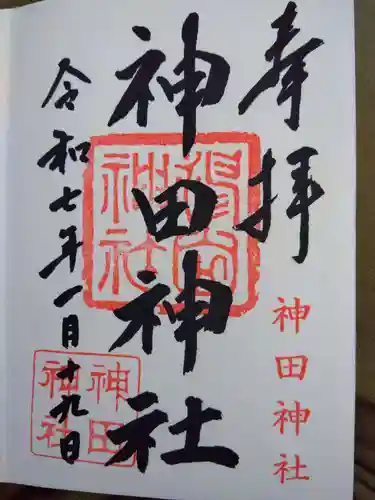 奉拝
神田神社
神田神社
令和七年一月十九日
神田神社